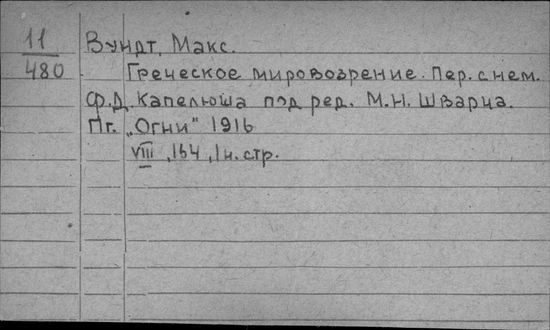 11 Вундт, Макс.
480 Греческое мировозрение. Пер. с нем.
Ф.Д. Капелюша под ред. М.Н. Шварца.
Пг. „Огни" 1916
VIII, 164, 1 н. стр.